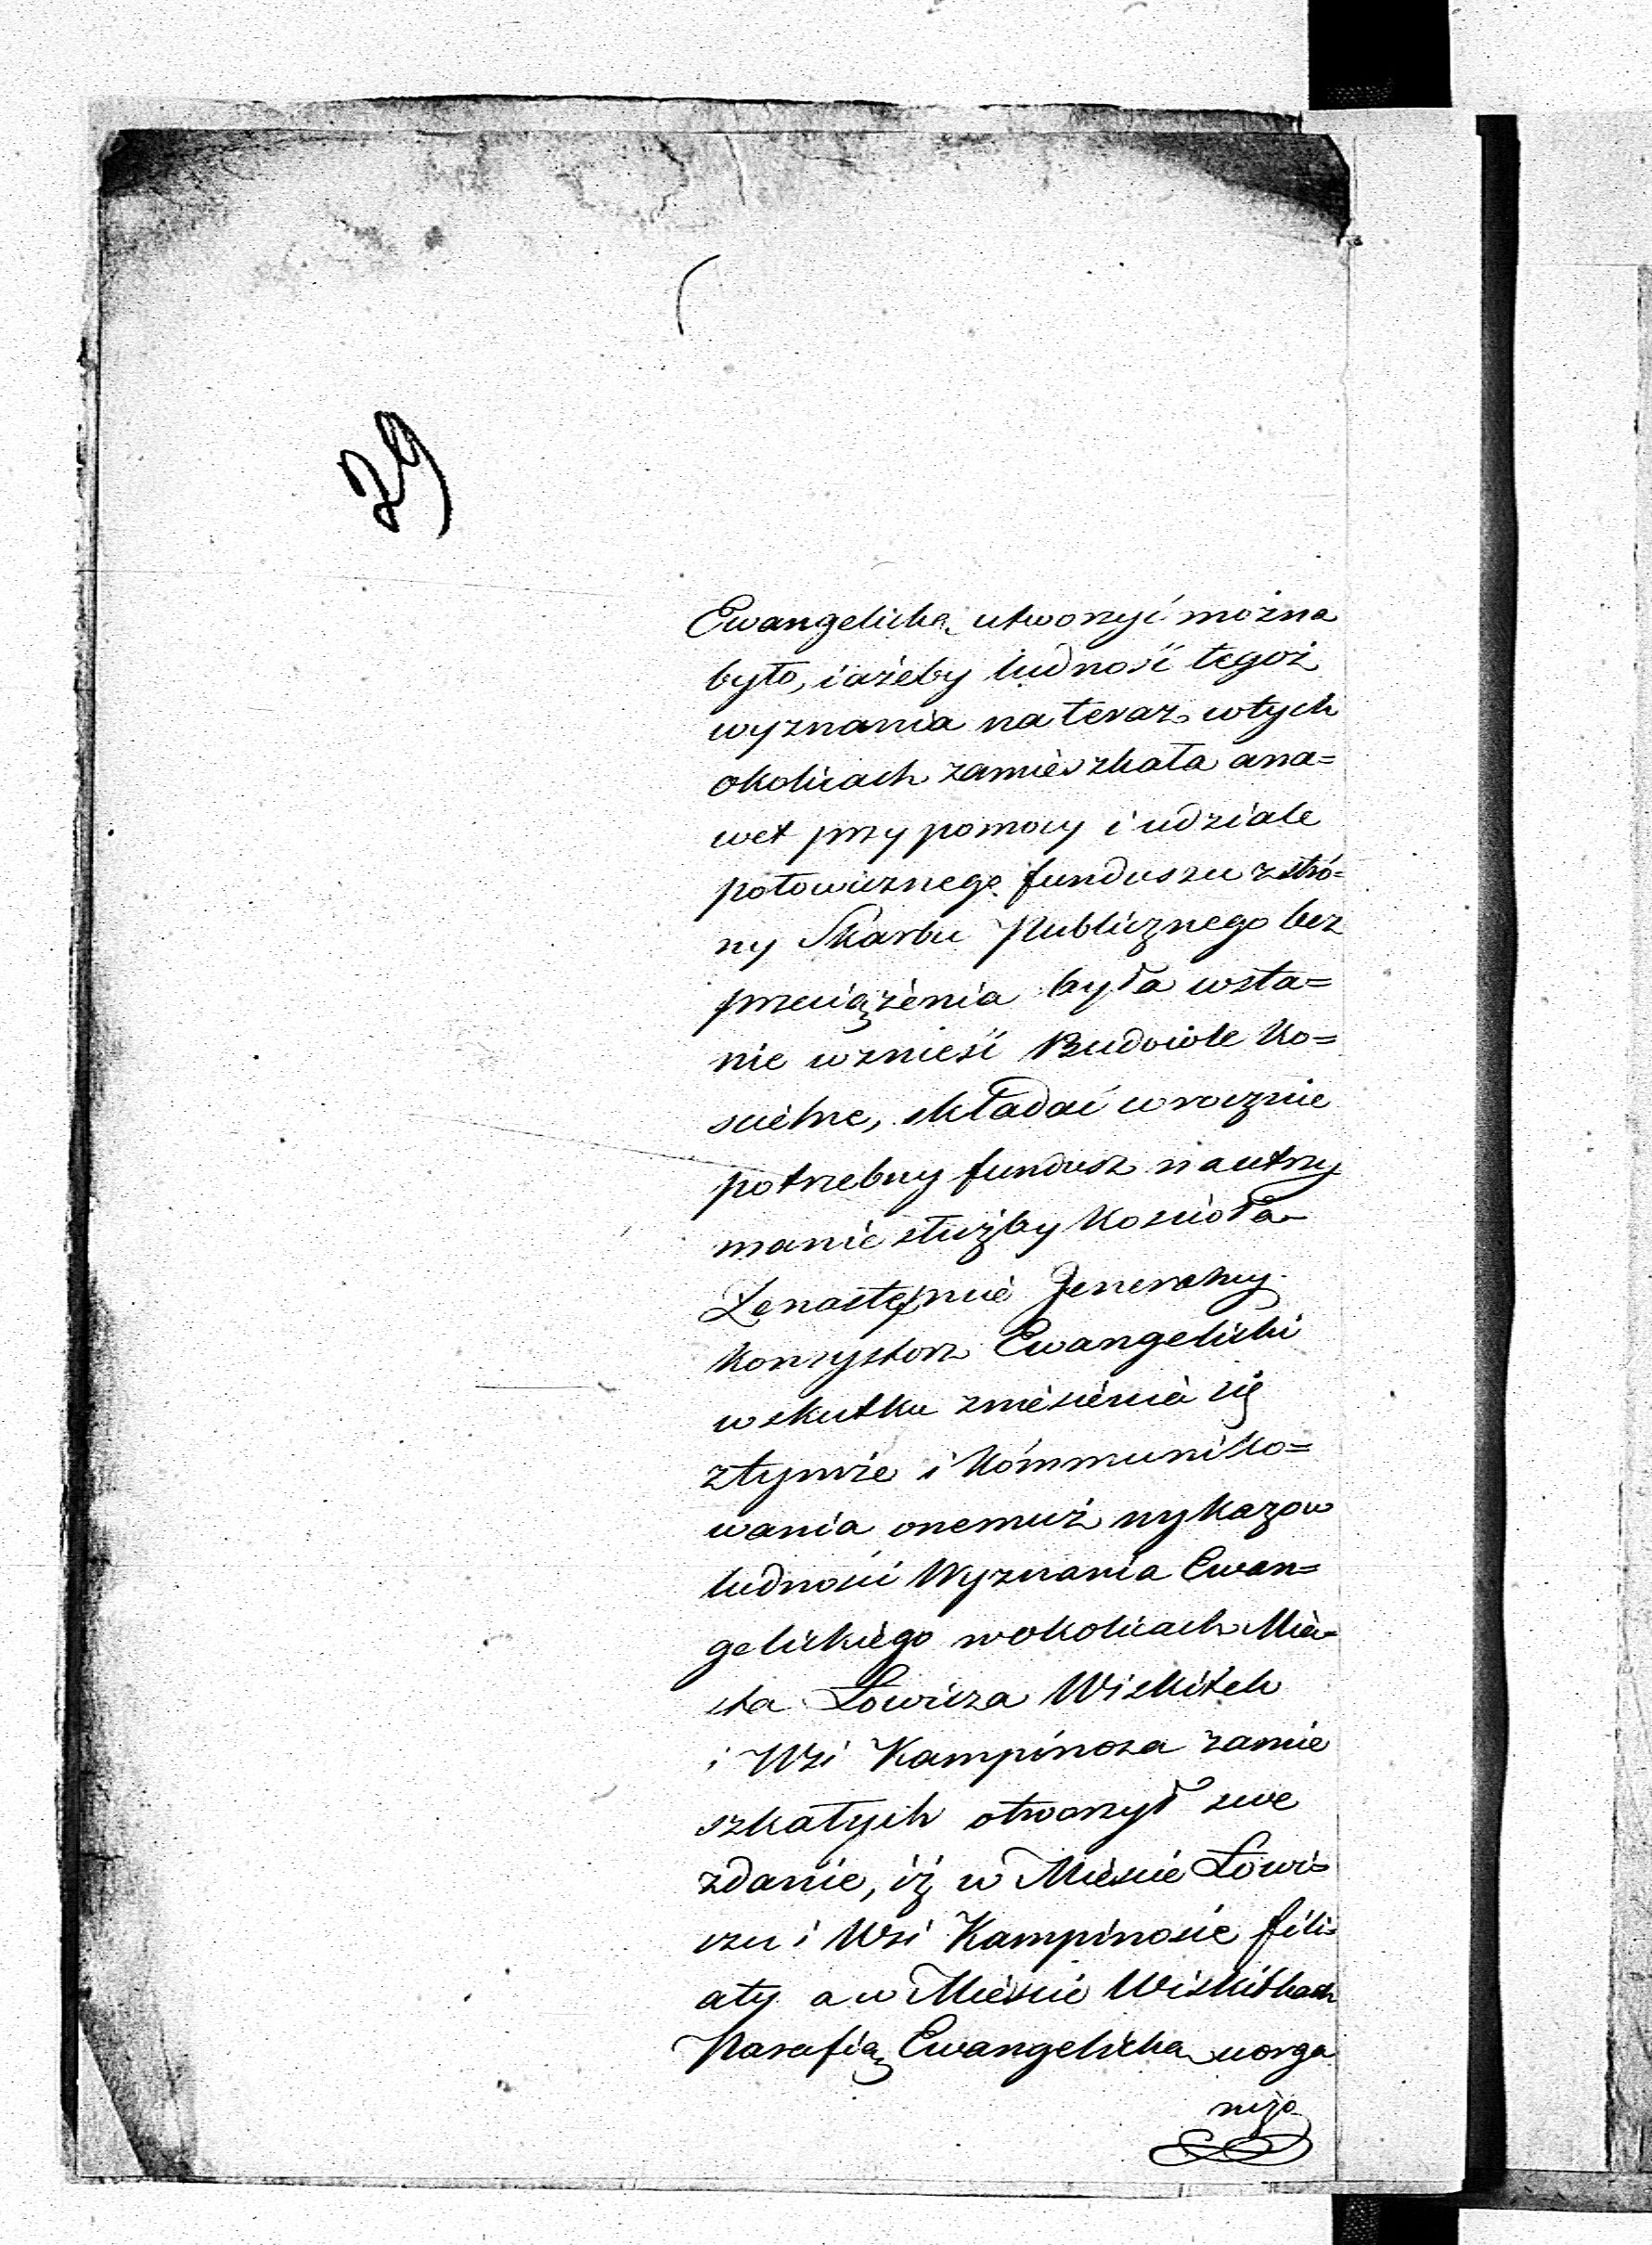 29
Ewangelicka utworzyć można
było, i ażeby ludność tegoż
wyznania na teraz w tych
okolicach zamieszkała ana=
wet przy pomocy i udziale
połowicznego funduszu z stró=
ny Skarbu Publicznego bez
przeciążenia była wsta=
nie wznieść Budowle Ko=
scielne, składać w rocznie
potrzebny fundusz na utrzy
manie służby Kościoła
Że następnie Jeneralny
Konsystorz Ewangelicki
w skutku zniesienia się
z tymże i Kómmuniko=
wania onemuż wykazow
ludności Wyznania Ewan=
gelickiego w okolicach Mia=
sta Łowicza Wiskitek
i Wsi Kampinosa zamie
szkałych otworzył swe
zdanie, iż w Mieście Łowi=
czu i Wsi Kampinosie fili=
ały a w Mieście Wiskitkach
Parafią Ewangelicką uorga